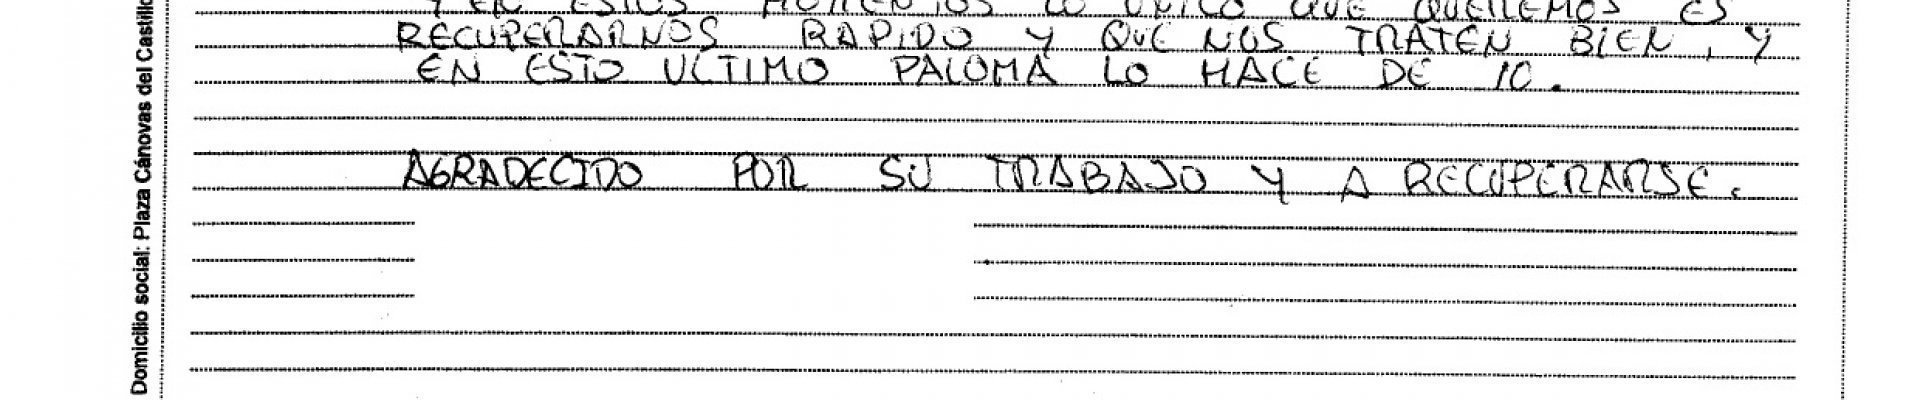 Y EN ESTOS MOMENTOS LO UNICO QUE QUEREMOS ES
RECUPERARNOS RAPIDO Y QUE NOS TRATEN BIEN, Y
EN ESTO ULTIMO PALOMA LO HACE DE 10.
AGRADECIDO POR SU TRABAJO Y A RECUPERARSE.
Domicilio social: Plaza Cánovas del Castillo